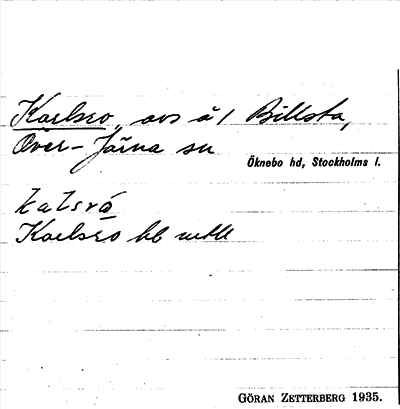 Karlsro, avs å 1 Billsta,
Över-Järna sn
Öknebo hd, Stockholms l.
kalsrå
Karlsro hb
GÖRAN ZETTERBERG 1935.